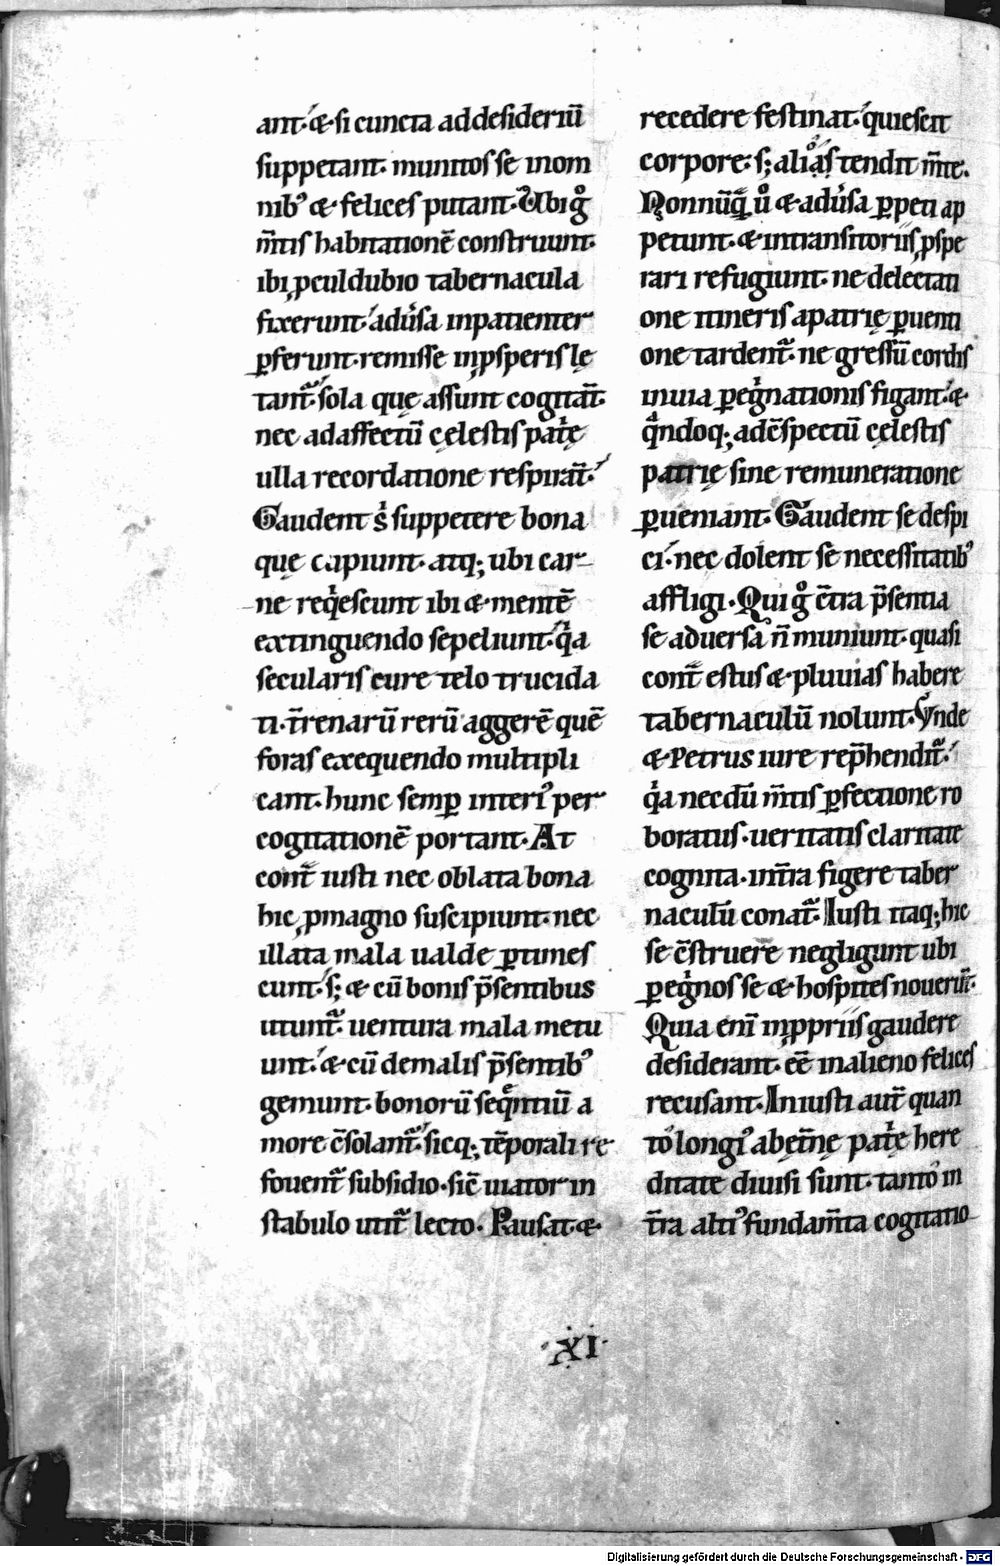 ant· & si cuncta ad desideriū
suppetant· munitos se in om
nibꝰ & felices putant· Ubi gͦ
m̄tis habitationē construunt·
ibi ꝓculdubio tabernacula
fixerunt· adu̾sa inpatienter
ꝑferunt· remisse in ꝓsperis lę
tant᷑ sola quę assunt cogitāt᷑·
nec ad affectū cęlestis pat͛ę
ulla recordatione respirāt᷑·
Gaudent sͥ suppetere bona
quę capiunt· atq; ubi car-
ne reqͥescunt ibi & mentē
extinguendo sepeliunt· qͥa
secularis cure telo trucida
ti· t̄renarū rerū aggerē quē
foras exequendo multipli
cant· hunc semꝑ interiꝰ per
cogitationē portant· At
cont̄ iusti nec oblata bona
hic ꝓ magno suscipiunt· nec
illata mala ualde ꝑtimes
cunt· s; & cū bonis p̄sentibus
utunt᷑· uentura mala metu
unt· & cū de malis p̄sentibꝰ
gemunt· bonorū seqͤntiū a
more c̄solant᷑· sicq; tēporali re
fouent᷑ subsidio· sic̄ uiator in
stabulo utit᷑ lecto· Pausat· &
recedere festinat· quiescit
corpore· s; aliͦas tendit m̄te·
Nonnūqͣ ū & adu̾sa ꝑpeti ap
petunt· & in transitoriis ꝓspe
rari refugiunt· ne delectati
one itineris a patrię ꝑuenti
one tardent᷑· ne gressū cordis
in uia ꝑegͥnationis figant· &
qͣndoq; ad c̄spectū cęlestis
patrię sine remuneratione
ꝑueniant· Gaudent se despi
ci· nec dolent se necessitatibꝰ
affligi· Qui gͦ c̄tra p̄sentia
se aduersa n̄ muniunt· quasi
cont̄ estus & pluuias habere
tabernaculū nolunt· Vnde
& Petrus iure rep̄hendit᷑·
qͥa necdū m̄tis ꝑfectione ro
boratus· ueritatis claritate
cognita· in t̄ra figere taber
naculū conat᷑· Iusti itaq; hic
se c̄struere negligunt ubi
ꝑegͥnos se & hospites nouerūt·
Quia eni̅ in ꝓpriis gaudere
desiderant· ee̅ in alieno felices
recusant· Iniusti aut̄ quan
to longiꝰ ab ęt̄nę pat͛ę here
ditate diuisi sunt· tanto in
t̄ra altiꝰ fundam̄ta cogitatio
·XI·
Digitalisierung gefördert durch die Deutsche Forschungsgemeinschaft - DFG